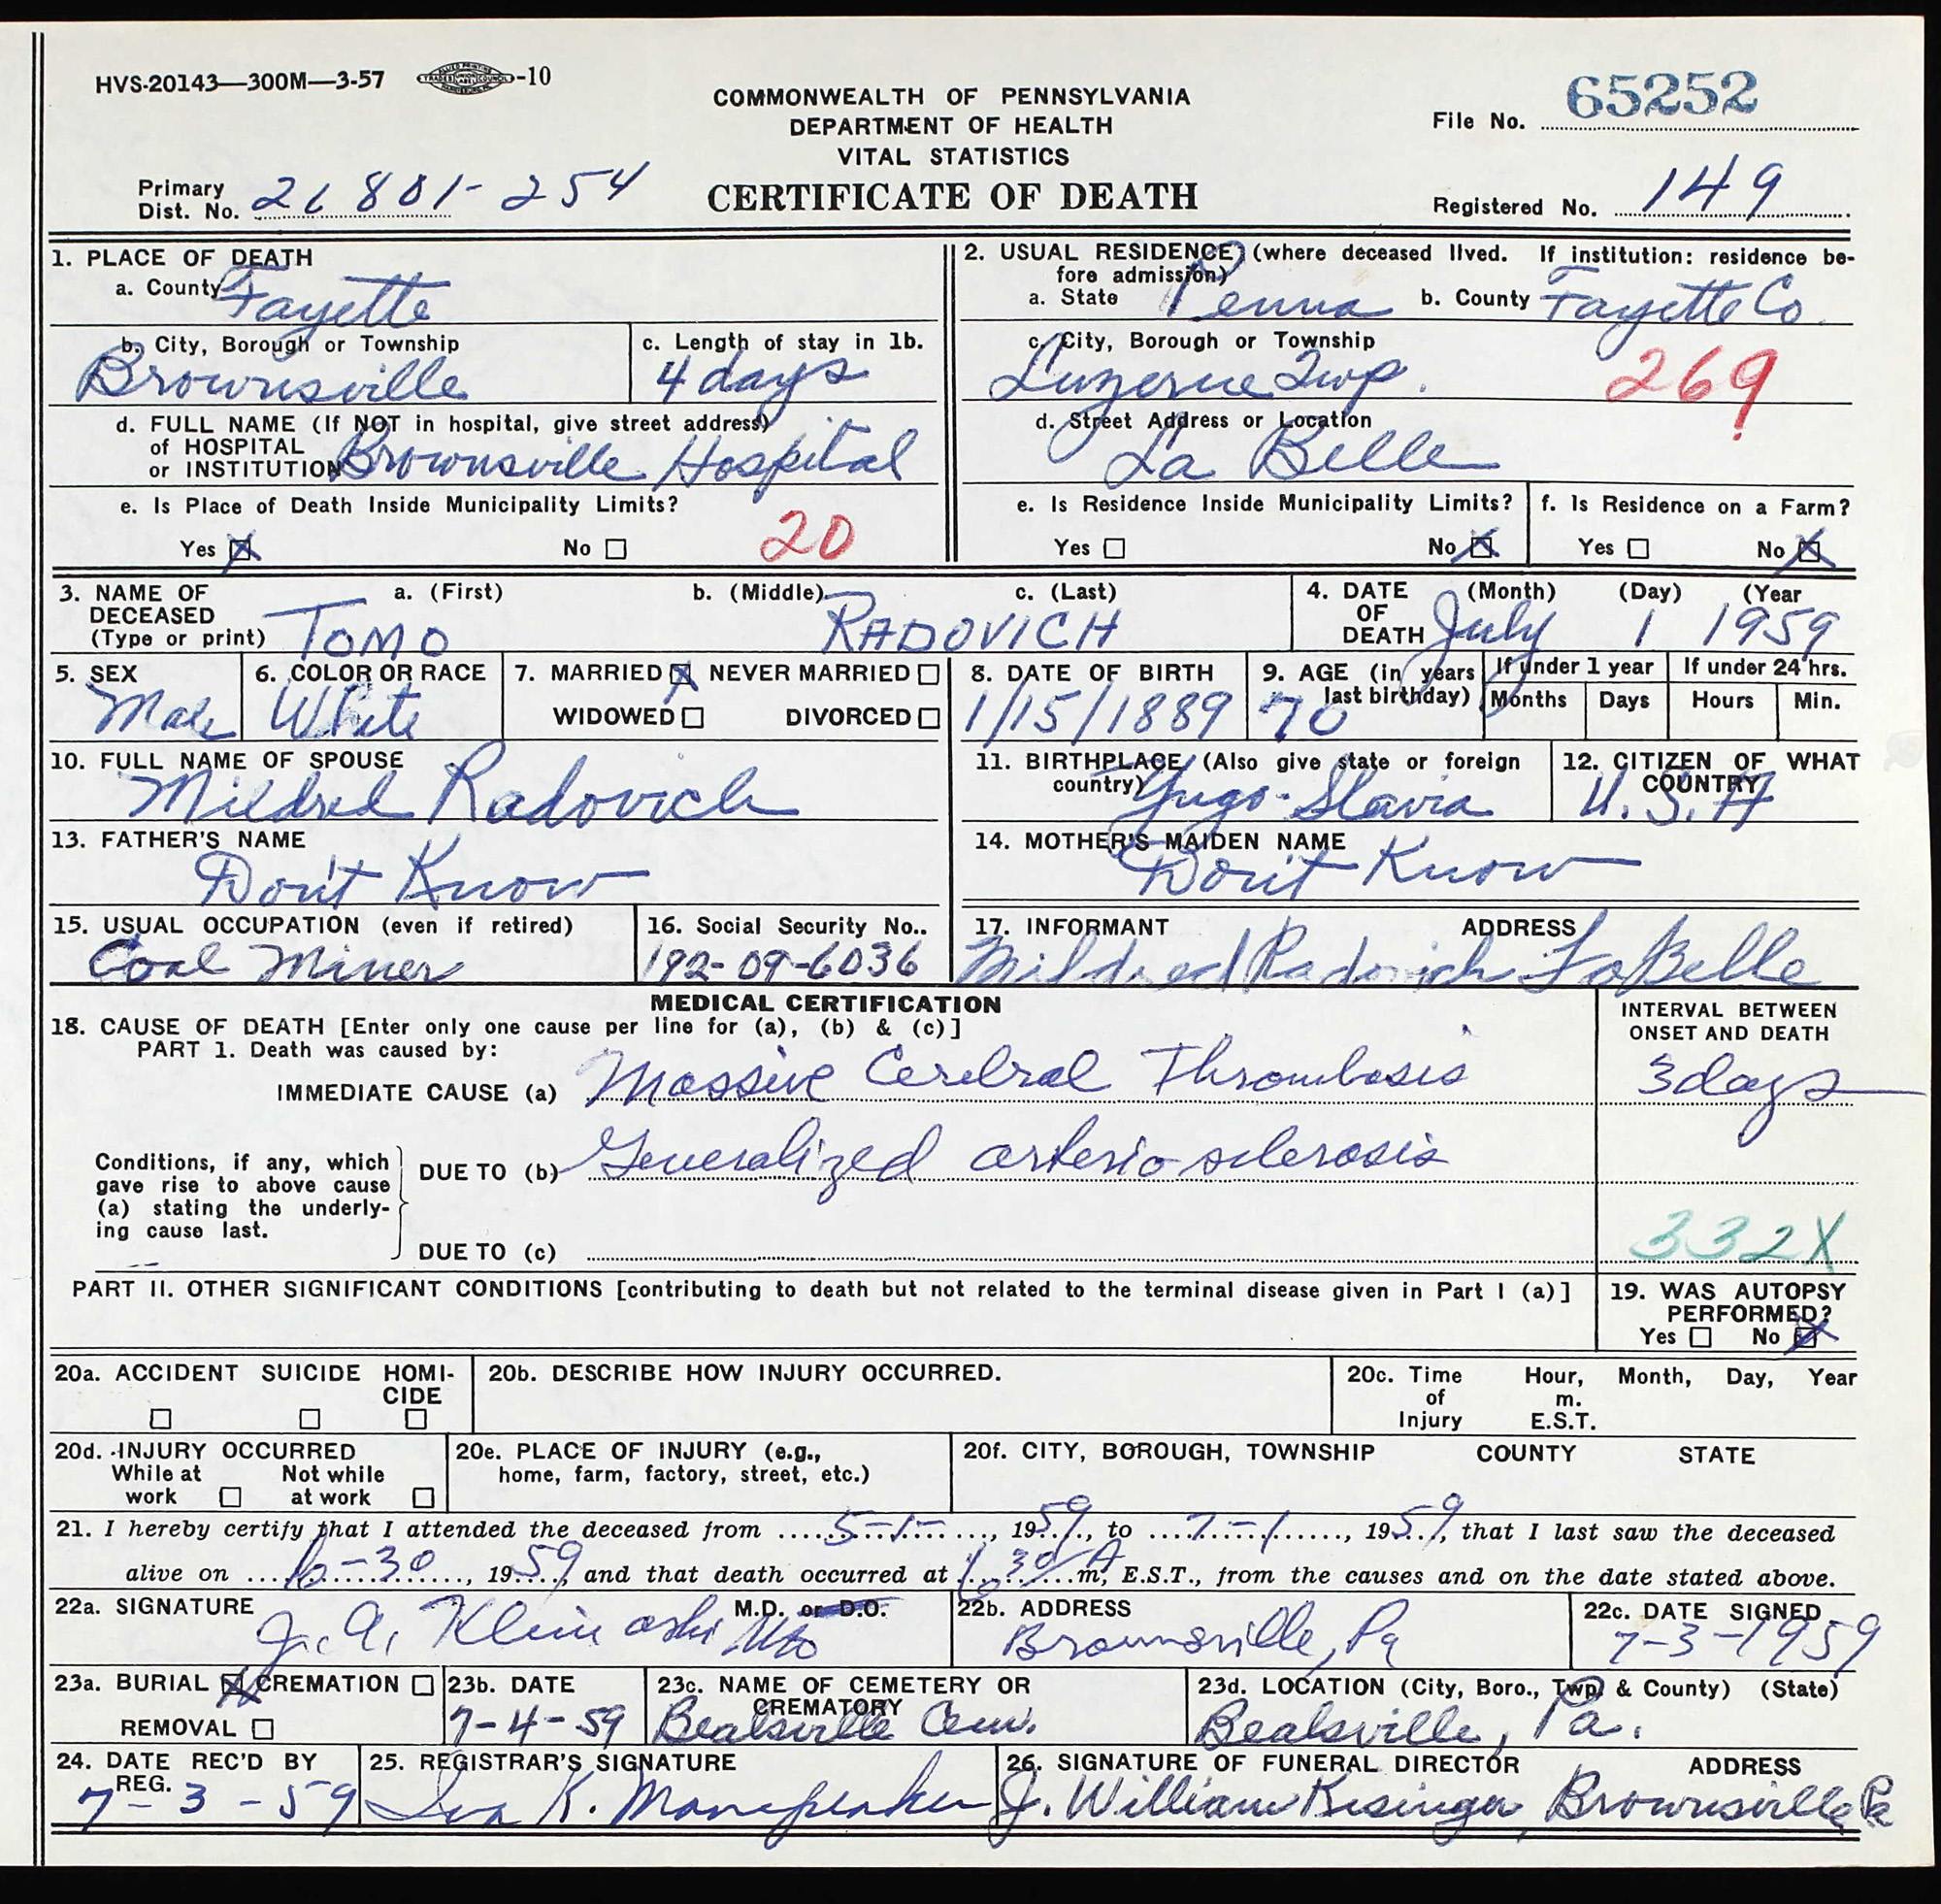 HVS-20143—300M—3-57 -10
COMMONWEALTH OF PENNSYLVANIA
DEPARTMENT OF HEALTH
VITAL STATISTICS
CERTIFICATE OF DEATH
File No. 65252
Primary
Dist. No. 26801-254
Registered No. 149
1. PLACE OF DEATH
a. County Fayette
b. City, Borough or Township
Brownsville
c. Length of stay in 1b.
4 days
d. FULL NAME (If NOT in hospital, give street address)
of HOSPITAL
or INSTITUTION Brownsville Hospital
e. Is Place of Death Inside Municipality Limits?
Yes No 20
2. USUAL RESIDENCE (where deceased lived. If institution: residence be-
fore admission)
a. State Penna b. County Fayette Co.
c. City, Borough or Township
Luzerne Twp. 269
d. Street Address or Location
La Belle
e. Is Residence Inside Municipality Limits?
Yes No
f. Is Residence on a Farm?
Yes No
3. NAME OF DECEASED (Type or print)
a. (First) b. (Middle) c. (Last)
TOMO RADOVICH
4. DATE OF DEATH (Month) (Day) (Year
July 1 1959
5. SEX
Male
6. COLOR OR RACE
White
7. MARRIED NEVER MARRIED
WIDOWED DIVORCED
8. DATE OF BIRTH
1/15/1889
9. AGE (in years
last birthday)
70
If under 1 year
Months Days
If under 24 hrs.
Hours Min.
10. FULL NAME OF SPOUSE
Mildred Radovich
11. BIRTHPLACE (Also give state or foreign
country) Yugo-Slavia
12. CITIZEN OF WHAT
COUNTRY
U.S.A
13. FATHER'S NAME
Don't Know
14. MOTHER'S MAIDEN NAME
Don't Know
15. USUAL OCCUPATION (even if retired)
Coal Miner
16. Social Security No..
192-09-6036
17. INFORMANT ADDRESS
Mildred Radovich LaBelle
MEDICAL CERTIFICATION
18. CAUSE OF DEATH [Enter only one cause per line for (a), (b) & (c)]
PART 1. Death was caused by:
INTERVAL BETWEEN
ONSET AND DEATH
IMMEDIATE CAUSE (a) Massive Cerebral Thrombosis 3 days
Conditions, if any, which
gave rise to above cause
(a) stating the underly-
ing cause last.
DUE TO (b) Generalized arterio sclerosis
DUE TO (c)
332X
PART II. OTHER SIGNIFICANT CONDITIONS [contributing to death but not related to the terminal disease given in Part I (a)]
19. WAS AUTOPSY
PERFORMED?
Yes No
20a. ACCIDENT SUICIDE HOMI-
CIDE
20b. DESCRIBE HOW INJURY OCCURRED.
20c. Time Hour, Month, Day, Year
of m.
Injury E.S.T.
20d. INJURY OCCURRED
While at Not while
work at work
20e. PLACE OF INJURY (e.g.,
home, farm, factory, street, etc.)
20f. CITY, BOROUGH, TOWNSHIP COUNTY STATE
21. I hereby certify that I attended the deceased from 5-1-, 1959, to 7-1, 1959, that I last saw the deceased
alive on 6-30, 1959 and that death occurred at 6 30 A m, E.S.T., from the causes and on the date stated above.
22a. SIGNATURE M.D. or D.O.
22b. ADDRESS
Brownsville, Pa
22c. DATE SIGNED
7-3-1959
23a. BURIAL CREMATION
REMOVAL
23b. DATE
7-4-59
23c. NAME OF CEMETERY OR
CREMATORY
Bealsville Cem.
23d. LOCATION (City, Boro., Twp. & County) (State)
Bealsville, Pa.
24. DATE REC'D BY
REG.
7-3-59
25. REGISTRAR'S SIGNATURE
26. SIGNATURE OF FUNERAL DIRECTOR ADDRESS
J. William Kisinger, Brownsville Pa